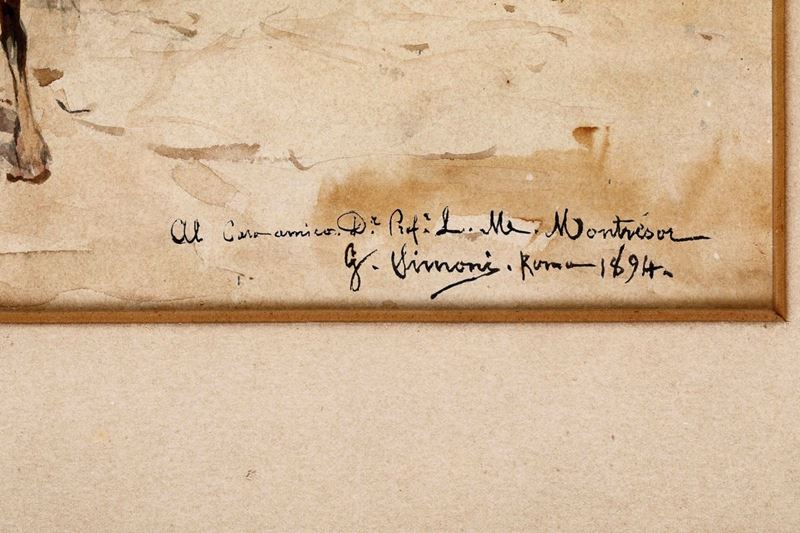 Al Caro amico. Dr. Profr. L. Me. Montrésor
G. Simoni. Roma 1894.